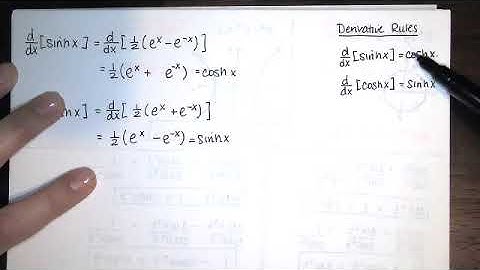 d/dx [sinhx] = d/dx [½(eˣ − e⁻ˣ)]
= ½(eˣ + e⁻ˣ) = coshx
hx] = d/dx [½(eˣ + e⁻ˣ)]
= ½(eˣ − e⁻ˣ) = sinhx
Derivative Rules
d/dx [sinhx] = coshx.
d/dx [coshx] = sinhx